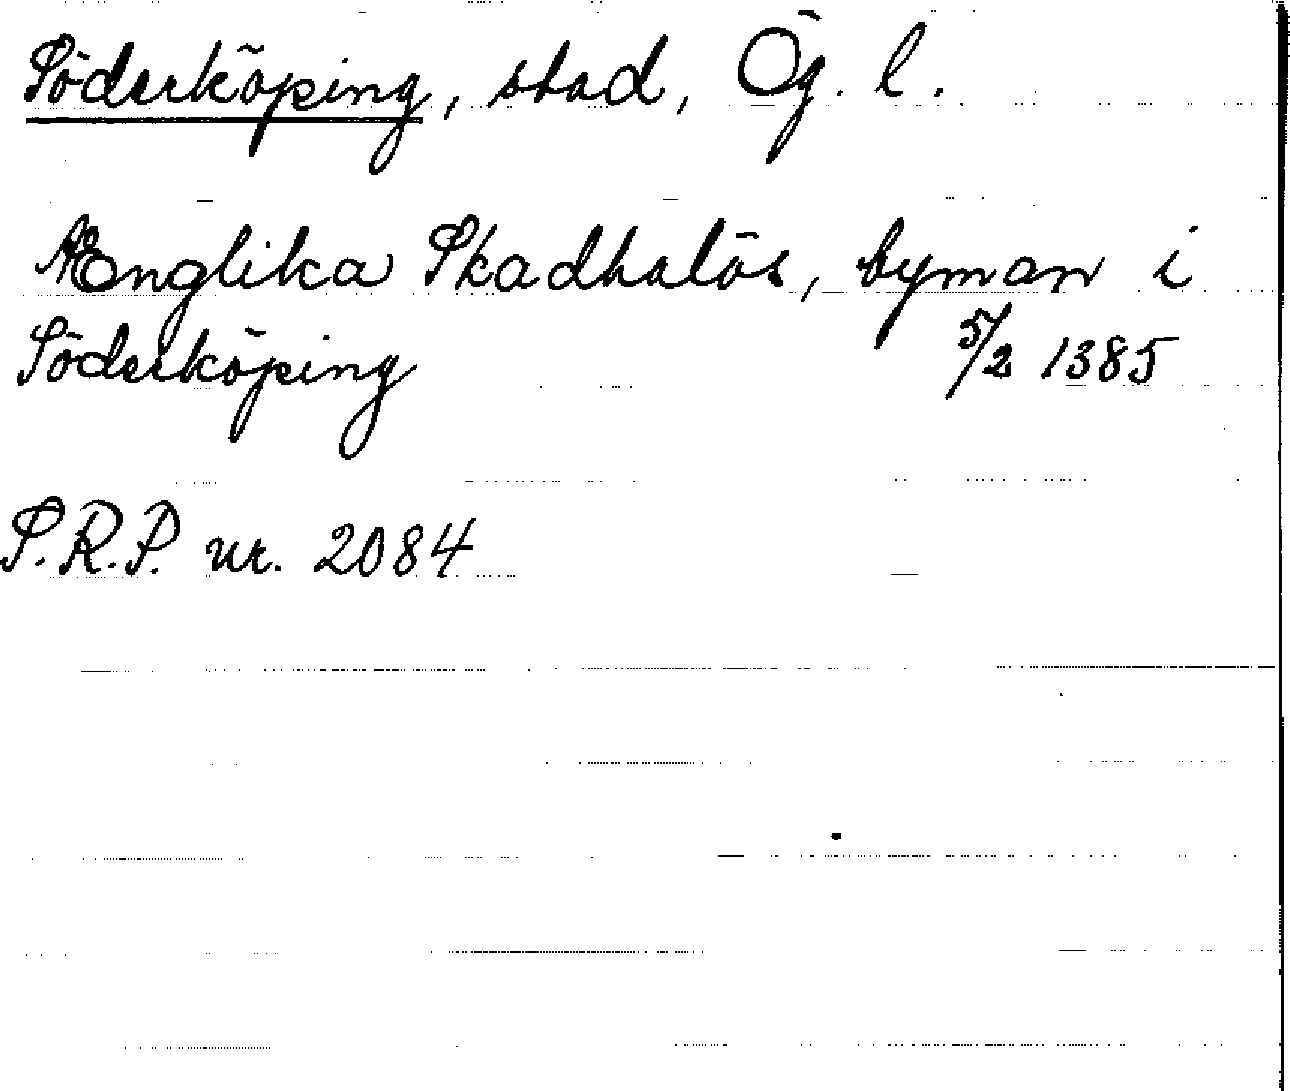 Söderköping, stad, Ög. l.
Ænglika Skadhalös, byman i
Söderköping 5/2 1385
S.R.P. nr. 2084